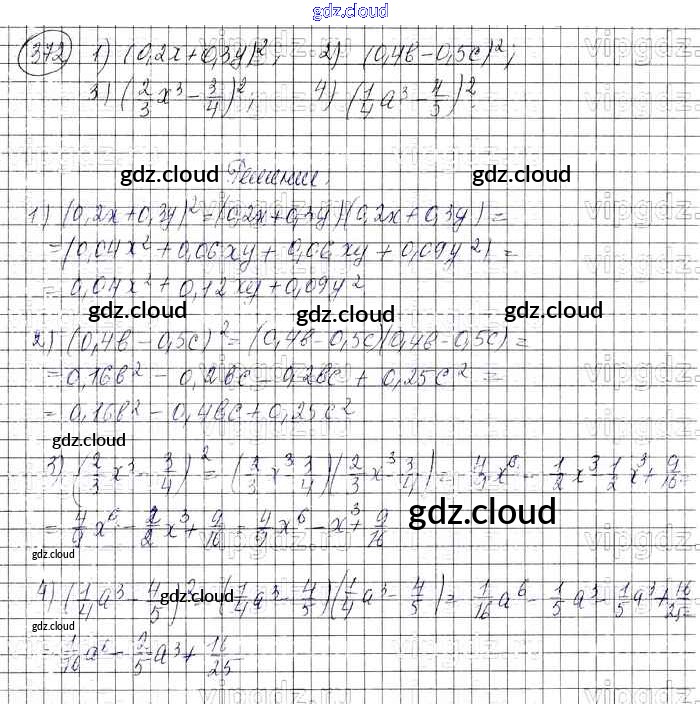 gdz.cloud
372 1) (0,2x+0,3y)²; 2) (0,4b-0,5c)²;
3) (2/3 x³ - 3/4)²; 4) (1/4 a³ - 4/5)²
gdz.cloud gdz.cloud gdz.cloud
Решение.
1) (0,2x+0,3y)²=(0,2x+0,3y)(0,2x+0,3y)=
=(0,04x²+0,06xy+0,06xy+0,09y²)=
=0,04x²+0,12xy+0,09y²
gdz.cloud gdz.cloud gdz.cloud
2) (0,4b-0,5c)²=(0,4b-0,5c)(0,4b-0,5c)=
=0,16b²-0,2bc-0,2bc+0,25c²=
=0,16b²-0,4bc+0,25c²
gdz.cloud
3) (2/3 x³ - 3/4)² = (2/3 x³ - 3/4)(2/3 x³ - 3/4) = 4/9 x⁶ - 1/2 x³ - 1/2 x³ + 9/16 =
= 4/9 x⁶ - 2/2 x³ + 9/16 = 4/9 x⁶ - x³ + 9/16
gdz.cloud
gdz.cloud
4) (1/4 a³ - 4/5)² = (1/4 a³ - 4/5)(1/4 a³ - 4/5) = 1/16 a⁶ - 1/5 a³ - 1/5 a³ + 16/25 =
gdz.cloud gdz.cloud gdz.cloud
gdz.cloud
= 1/16 a⁶ - 2/5 a³ + 16/25